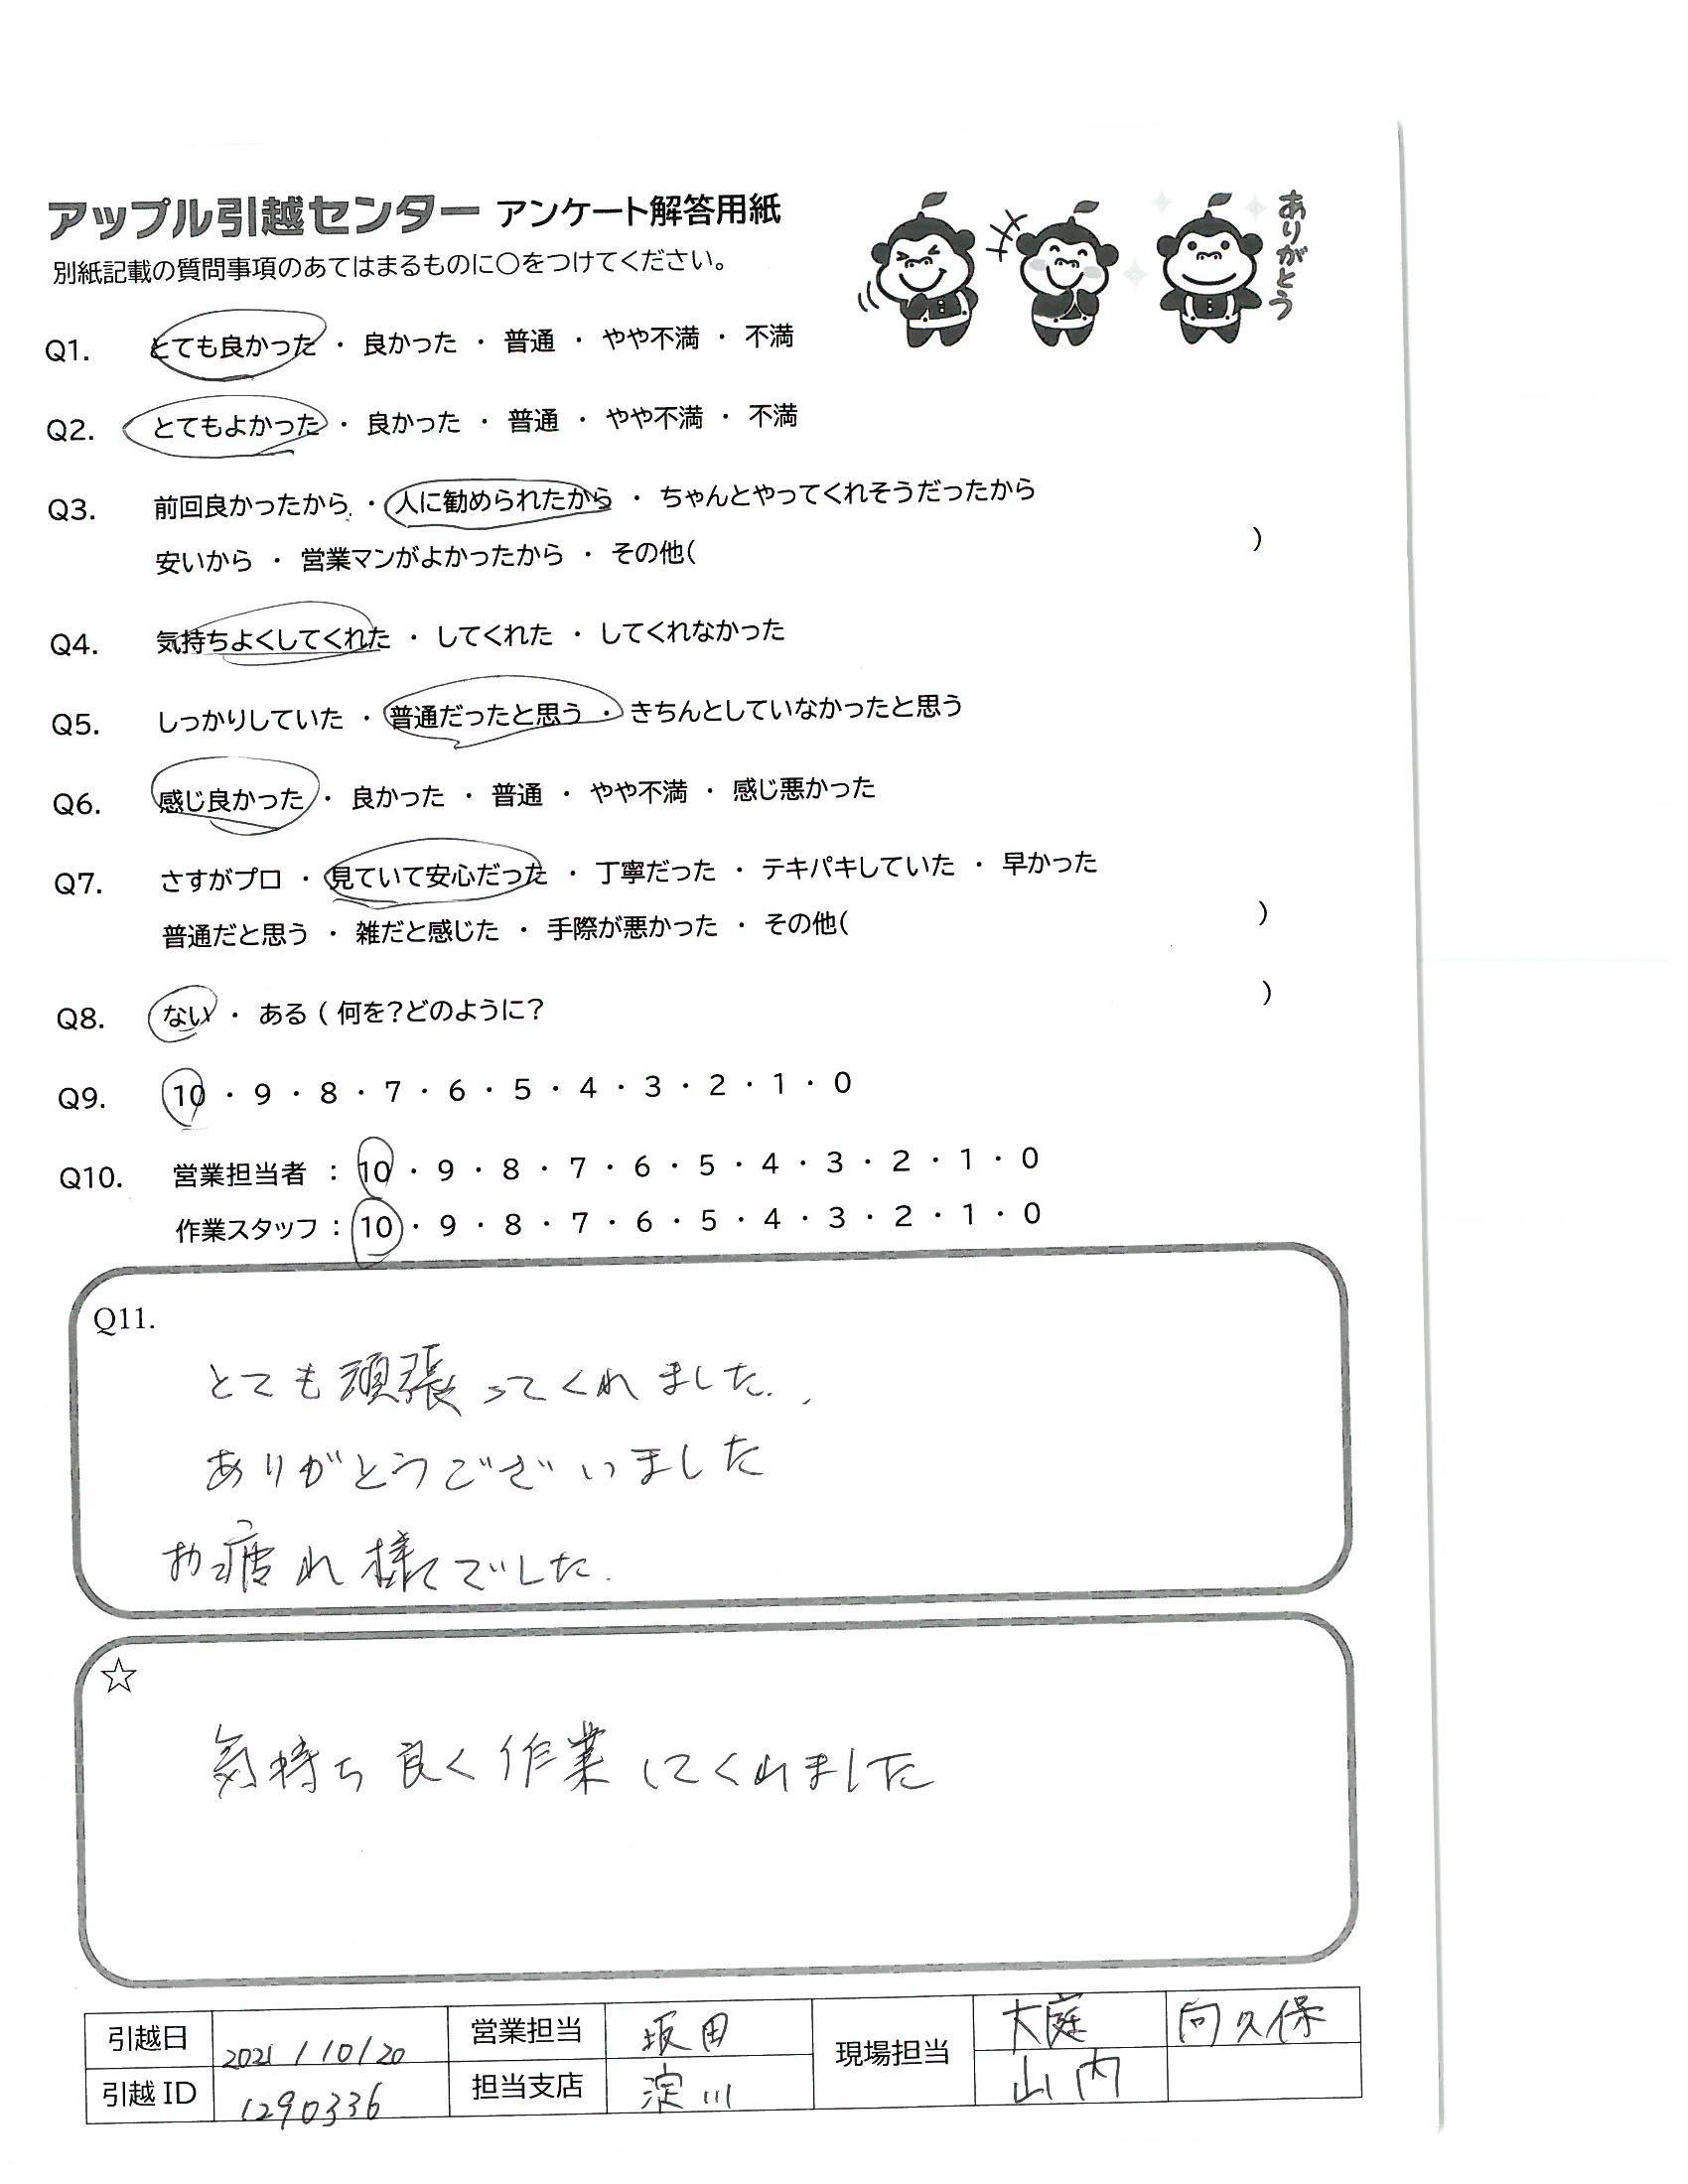 アップル引越センター アンケート解答用紙
ありがとう
別紙記載の質問事項のあてはまるものに〇をつけてください。
Q1. とても良かった ・ 良かった ・ 普通 ・ やや不満 ・ 不満
Q2. とてもよかった ・ 良かった ・ 普通 ・ やや不満 ・ 不満
Q3. 前回良かったから ・ 人に勧められたから ・ ちゃんとやってくれそうだったから
安いから ・ 営業マンがよかったから ・ その他( )
Q4. 気持ちよくしてくれた ・ してくれた ・ してくれなかった
Q5. しっかりしていた ・ 普通だったと思う ・ きちんとしていなかったと思う
Q6. 感じ良かった ・ 良かった ・ 普通 ・ やや不満 ・ 感じ悪かった
Q7. さすがプロ ・ 見ていて安心だった ・ 丁寧だった ・ テキパキしていた ・ 早かった
普通だと思う ・ 雑だと感じた ・ 手際が悪かった ・ その他( )
Q8. ない ・ ある ( 何を?どのように? )
Q9. 10 ・ 9 ・ 8 ・ 7 ・ 6 ・ 5 ・ 4 ・ 3 ・ 2 ・ 1 ・ 0
Q10. 営業担当者 : 10 ・ 9 ・ 8 ・ 7 ・ 6 ・ 5 ・ 4 ・ 3 ・ 2 ・ 1 ・ 0
作業スタッフ : 10 ・ 9 ・ 8 ・ 7 ・ 6 ・ 5 ・ 4 ・ 3 ・ 2 ・ 1 ・ 0
Q11.
とても頑張ってくれました.
ありがとうございました
お疲れ様でした.
☆
気持ち良く作業してくれました
引越日 2021/10/20 営業担当 坂田 現場担当 大庭 向久保
引越ID 1290336 担当支店 淀川 山内